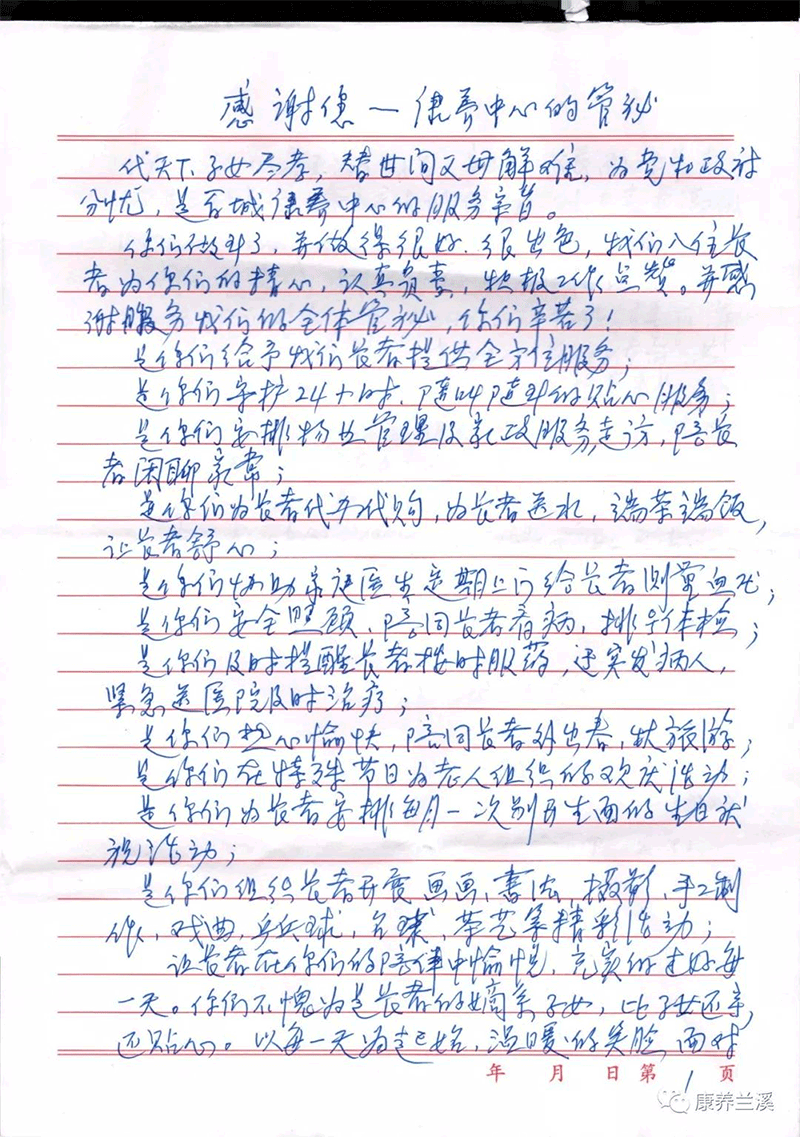 感谢您一康养中心的管秘
代天下子女尽孝，替世间父母解难，为党和政府
分忧，是 城康养中心的服务 。
你们做到了，并做得很好．很出色，我们入住长
者为你们的精心，认真负责，积极工作点赞。并感
谢服务我们的全体管秘，你们辛苦了！
是你们给予我们长者提供全方位服务；
是你们守护24小时．随叫随到的贴心服务；
是你们安排物业管理及家政服务走访，陪长
者闲聊家常；
是你们为长者代办代购，为长者送水，端茶端饭，
让长者舒心；
是你们协助家庭医生定期上门给长者测量血压；
是你们安全照顾、陪同长者看病，排 体检；
是你们及时提醒长者按时服药，遇突发病人，
紧急送医院及时治疗；
是你们 心愉快，陪同长者外出春，秋旅游；
是你们在特殊节日为老人组织的欢庆活动；
是你们为长者安排每月一次别开生面的生日祝
活动；
是你们组织长者开 画画、书法、摄影、手工制
作、戏曲，乒乓球， 球，茶艺等精彩活动；
让长者在你们的陪伴中愉悦、充实的过好每
一天。你们不愧为是长者的嫡系子女，比子女还亲，
还贴心。以每一天为起始，温暖的笑脸，面对
年 月 日 第 1 页
康养兰溪